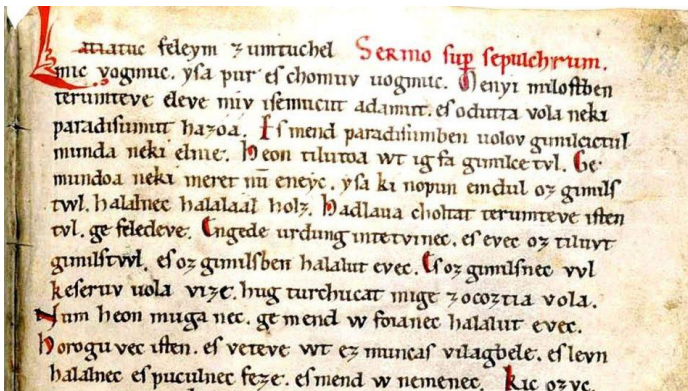 Latiatuc feleym ʒumtuchel Sermo sup sepulchrum.
mic vogmuc. yſa pur eſ chomuv uogmuc. Menyi miloſtben
terumteve eleve miv iſemucut adamut. eſ odutta vola neki
paradiſumut haʒoa. Eſ mend paradiſumben uolov gimilcictul
munda neki elnie. Heon tilutoa wt ig fa gimilce tvl. Ge
mundoa neki meret nū eneyc. yſa ki nopun emdul oʒ gimilſ
twl. halalnec halalaal holʒ. Hadlaua choltat terumteve iſten
tvl. ge feledeve. Engede urdung intetvinec. eſ evec oʒ tiluvt
gimilſtwl. eſ oʒ gimilſben halalut evec. Eſ oʒ gimilſnec vvl
keſeruv uola viʒe. hug turchucat mige ʒocoʒtia vola.
Num heon muga nec. ge mend w foianec halalut evec.
Horogu vec iſten. eſ veteve wt eʒ muncaſ vilagbele. eſ levn
halalnec eſ puculnec feʒe. eſ mend w nemenec. Kic oʒvc.